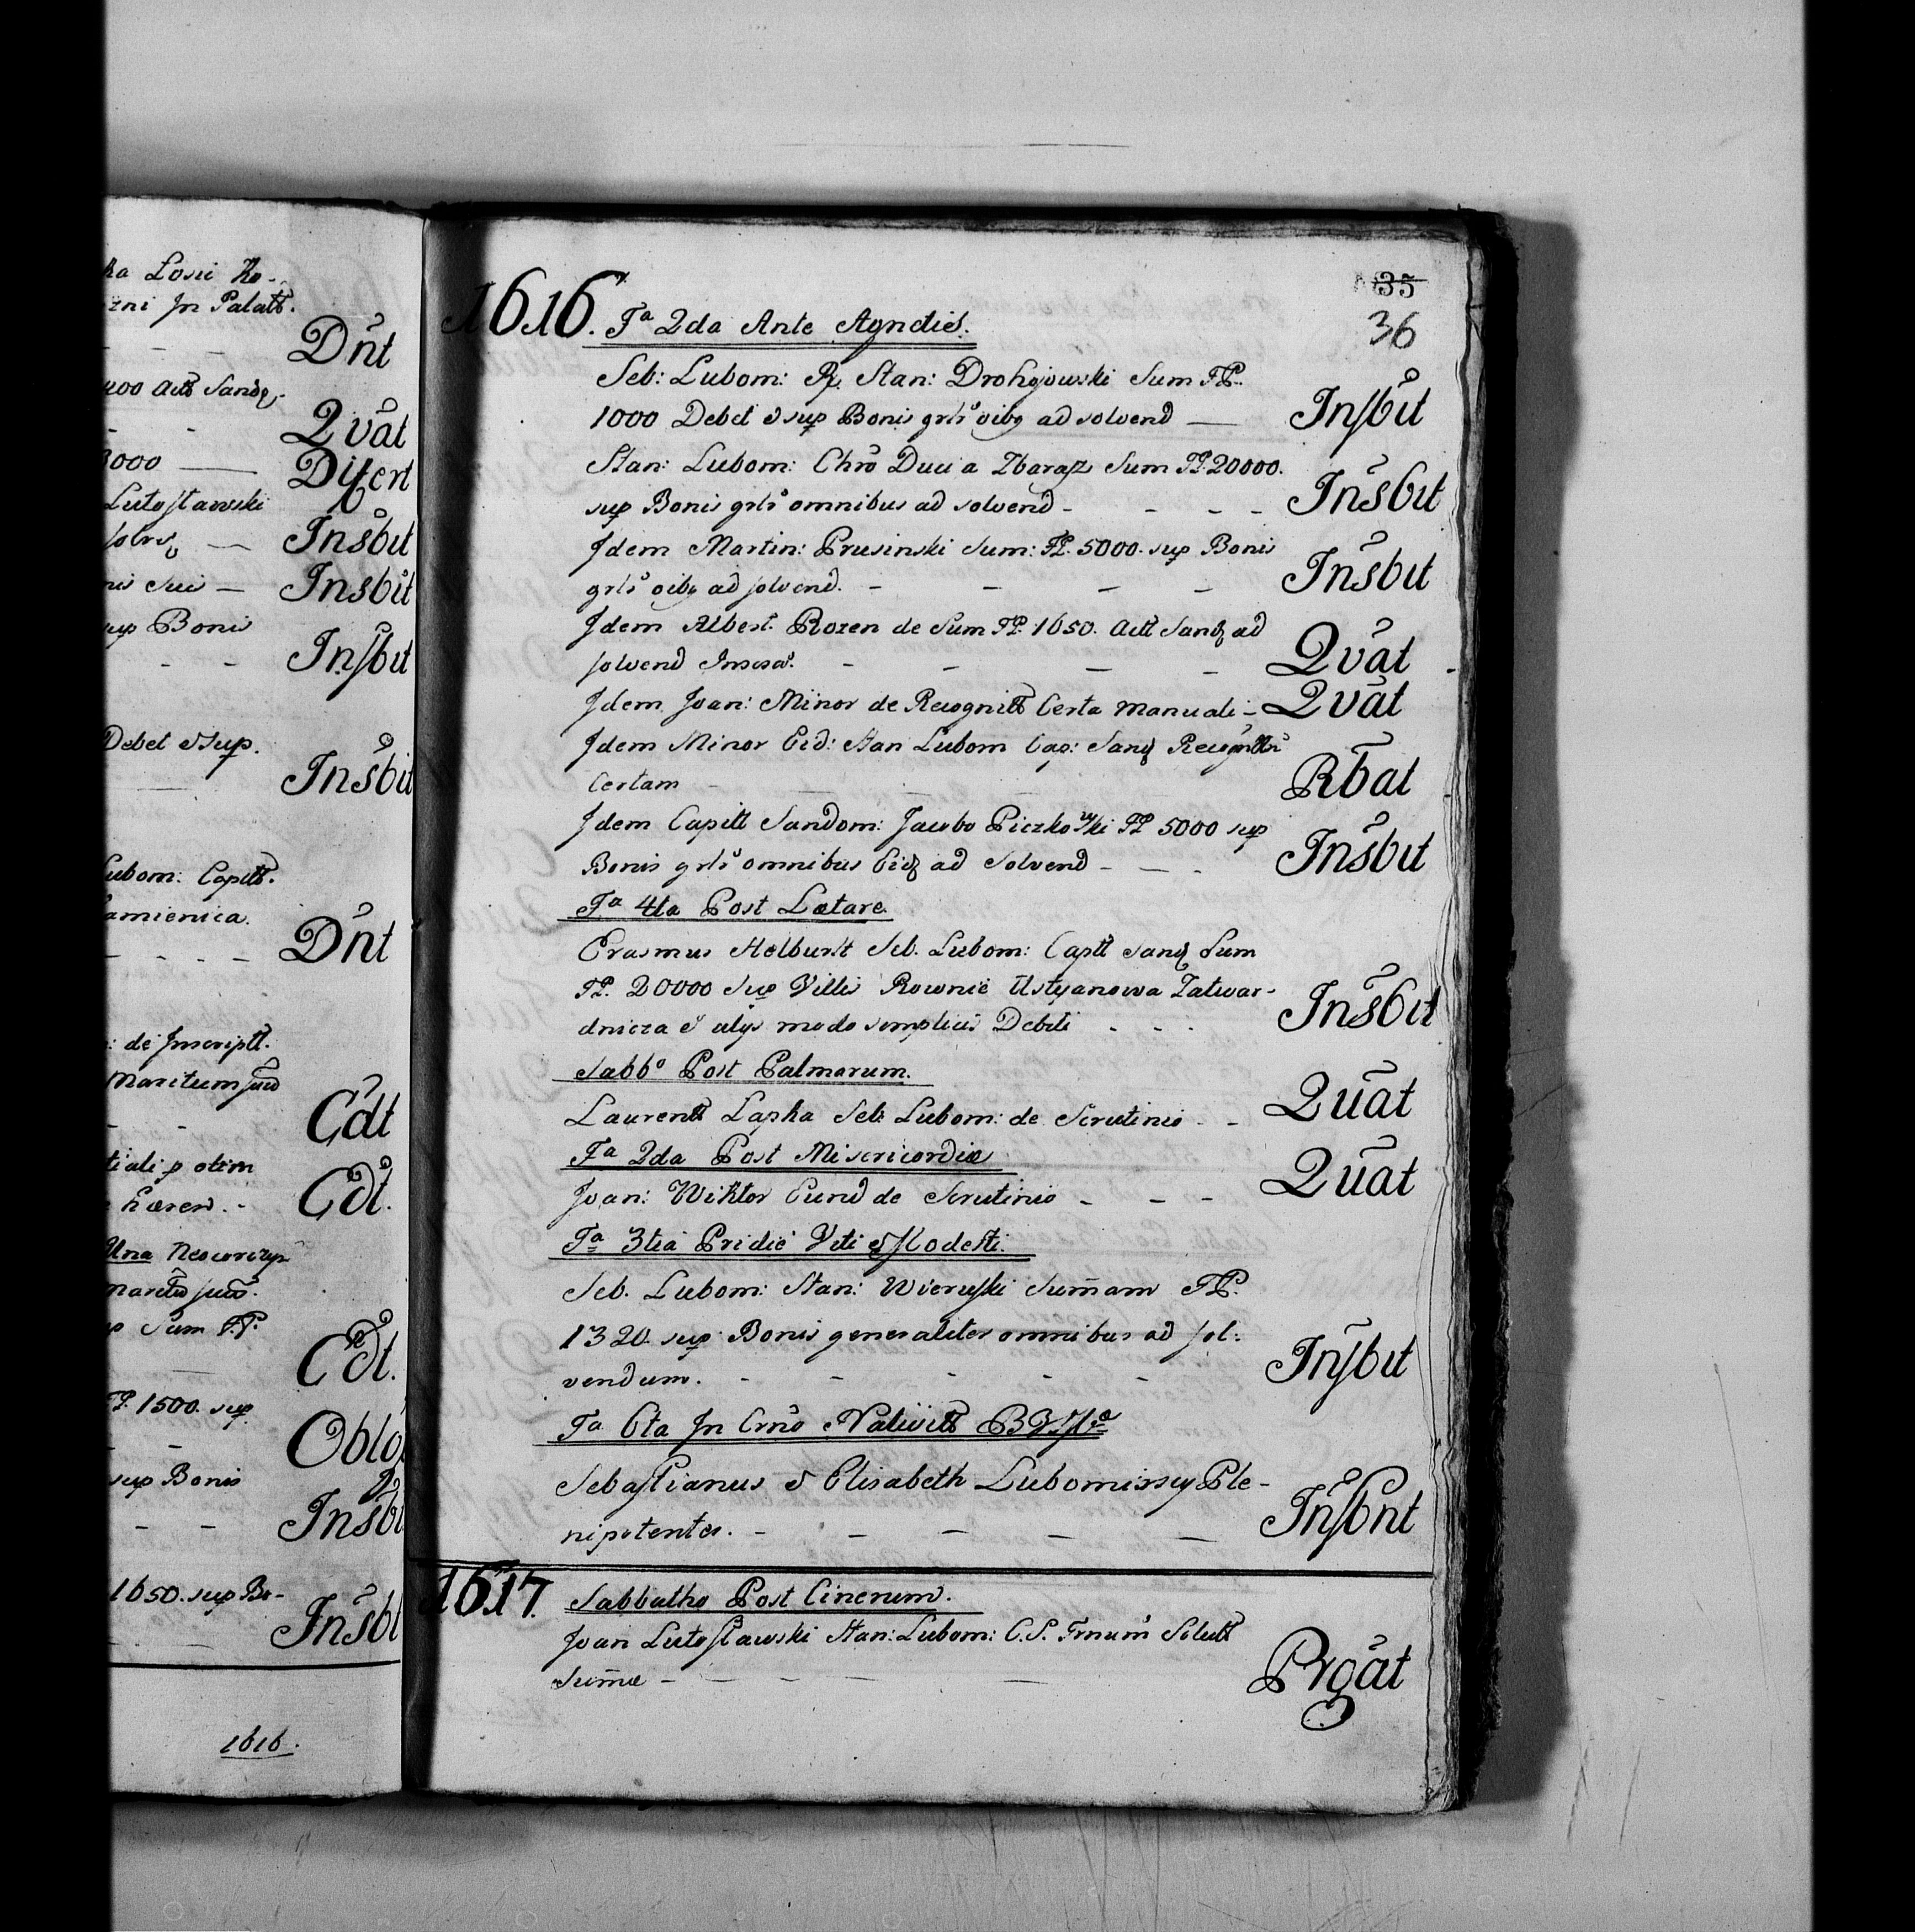 ka Losii Ko-
zni Jn Palatt.
Dnt
400 Actt Sandz.
Qvat
3000
Disert
Lutosławski
Insbit
nis sui —
Insbit
sup Bonis
Insbit
Debet & sup.
Insbit
Lubom: Capitt.
amienica.
Dnt
: de Jnscriptt.
Maritum suu
Cdt
tiali p otim
hæred. -
Cdt.
Una
Maritu suu.
p Sum F.P.
Cdt.
FP. 1500. sup
Oblg
sup Bonis
Insbt
1650. sup Bo-
Insbt
1616.
35
36
1616. Fa 2da Ante Agnetis.
Seb: Lubom: R. Stan: Drohojowski Sum FP.
1000 Debet & sup Bonis grlr oibq ad solvend — Insbit
Stan: Lubom: Chro Duci a Zbaraz Sum FP 20000.
sup Bonis grlr omnibus ad solvend - - - - Insbit
Jdem Martin: Prusinski Sum: FP. 5000. sup Bonis
grlr oibq ad solvend. - - - - Insbit
Jdem Albert. Rozen de Sum FP. 1650. Actt Sandz ad
solvend - - - - Qvat
Jdem Joan: Minor de Recognitt Certa manuali - Qvat
Jdem Minor Eid: Stan Lubom Cap: Sandz
Certam - Rbat
Jdem Capitt Sandom: Jacobo Piczkowski FP 5000 sup
Bonis grlr omnibus Eidz ad Solvend - — - Insbit
Fa 4ta Post Lætare.
Erasmus Helburst Seb. Lubom: Captt Sandz Sum
FP. 20000 Sup Villis Rownie Ustyanowa Zatwar-
dnicza & alys modo simplicis Debiti - - - Insbit
Sabbo Post Palmarum.
Laurentt Lapka Seb: Lubom: de Scrutinio - - Quat
Fa 2da Post Misericordiæ
Joan: Wiktor Eund de Scrutinio - - - Quat
Fa 3tia Pridie Viti & Modesti.
Seb. Lubom: Stan: Wieruski Sumam FP.
1320. sup Bonis generaliter omnibus ad sol-
vendum. - - - - - Insbit
Fa 6ta Jn Crno Nativitt B V Mæ
Sebastianus & Elisabeth Lubomirscy Ple-
nipotentes. - — — — — Insbnt
1617. Sabbatho Post Cinerum.
Joan Lutosławski Stan: Lubom: C.S. Trnum Solutt
Sumæ - — - — Prgat